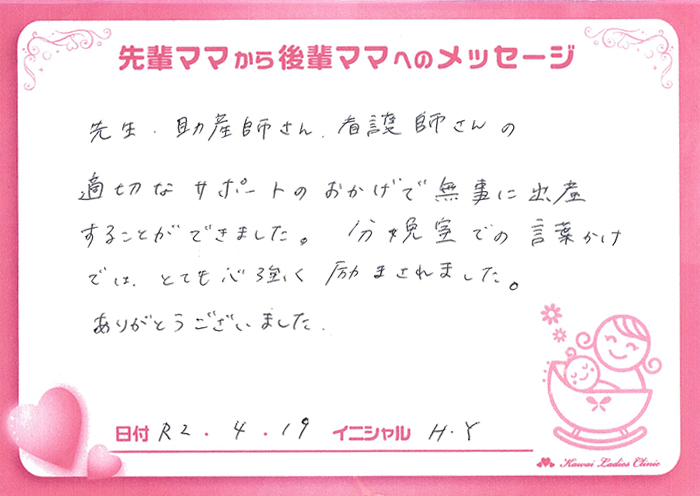 先輩ママから後輩ママへのメッセージ
先生、助産師さん、看護師さんの
適切なサポートのおかげで無事に出産
することができました。分娩室での言葉かけ
では、とても心強く励まされました。
ありがとうございました。
日付 R2.4.19 イニシャル H.Y
Kawai Ladies Clinic